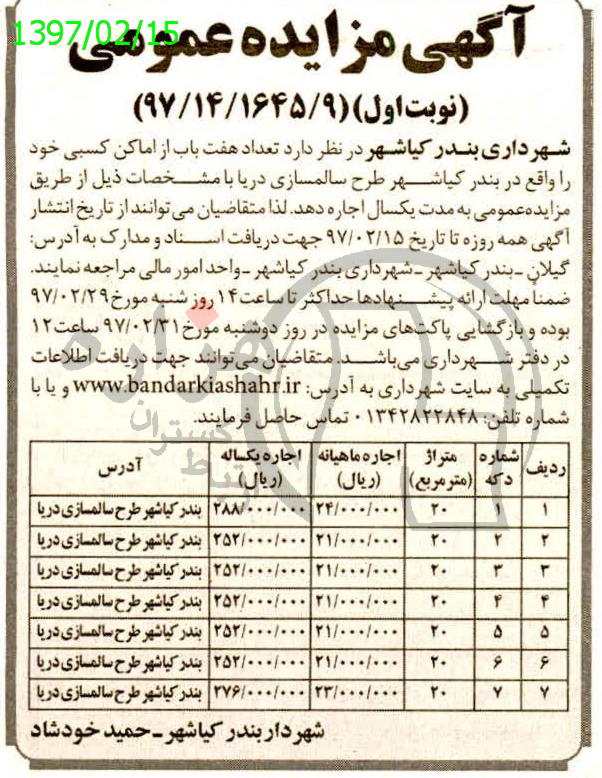 1397/02/15
آگهی مزایده عمومی
(نوبت اول) (۹۷/۱۴/۱۶۴۵/۹)
شهرداری بندر کیاشهر در نظر دارد تعداد هفت باب از اماکن کسبی خود
را واقع در بندر کیاشهر طرح سالمسازی دریا با مشخصات ذیل از طریق
مزایده‌عمومی به مدت یکسال اجاره دهد. لذا متقاضیان می‌توانند از تاریخ انتشار
آگهی همه روزه تا تاریخ ۹۷/۰۲/۱۵ جهت دریافت اسناد و مدارک به آدرس:
گیلان ـ بندر کیاشهر ـ شهرداری بندر کیاشهر ـ واحد امور مالی مراجعه نمایند.
ضمناً مهلت ارائه پیشنهادها حداکثر تا ساعت ۱۴ روز شنبه مورخ ۹۷/۰۲/۲۹
بوده و بازگشایی پاکت‌های مزایده در روز دوشنبه مورخ ۹۷/۰۲/۳۱ ساعت ۱۲
در دفتر شهرداری می‌باشد. متقاضیان می‌توانند جهت دریافت اطلاعات
تکمیلی به سایت شهرداری به آدرس: www.bandarkiashahr.ir و یا با
شماره تلفن: ۰۱۳۴۲۸۲۲۸۴۸ تماس حاصل فرمایند.
هزاره
گستران
ارتباط
ردیف شماره دکه متراژ (مترمربع) اجاره ماهیانه (ریال) اجاره یکساله (ریال) آدرس
۱ ۱ ۲۰ ۲۴/۰۰۰/۰۰۰ ۲۸۸/۰۰۰/۰۰۰ بندر کیاشهر طرح سالمسازی دریا
۲ ۲ ۲۰ ۲۱/۰۰۰/۰۰۰ ۲۵۲/۰۰۰/۰۰۰ بندر کیاشهر طرح سالمسازی دریا
۳ ۳ ۲۰ ۲۱/۰۰۰/۰۰۰ ۲۵۲/۰۰۰/۰۰۰ بندر کیاشهر طرح سالمسازی دریا
۴ ۴ ۲۰ ۲۱/۰۰۰/۰۰۰ ۲۵۲/۰۰۰/۰۰۰ بندر کیاشهر طرح سالمسازی دریا
۵ ۵ ۲۰ ۲۱/۰۰۰/۰۰۰ ۲۵۲/۰۰۰/۰۰۰ بندر کیاشهر طرح سالمسازی دریا
۶ ۶ ۲۰ ۲۱/۰۰۰/۰۰۰ ۲۵۲/۰۰۰/۰۰۰ بندر کیاشهر طرح سالمسازی دریا
۷ ۷ ۲۰ ۲۳/۰۰۰/۰۰۰ ۲۷۶/۰۰۰/۰۰۰ بندر کیاشهر طرح سالمسازی دریا
شهردار بندر کیاشهر ـ حمید خودشاد